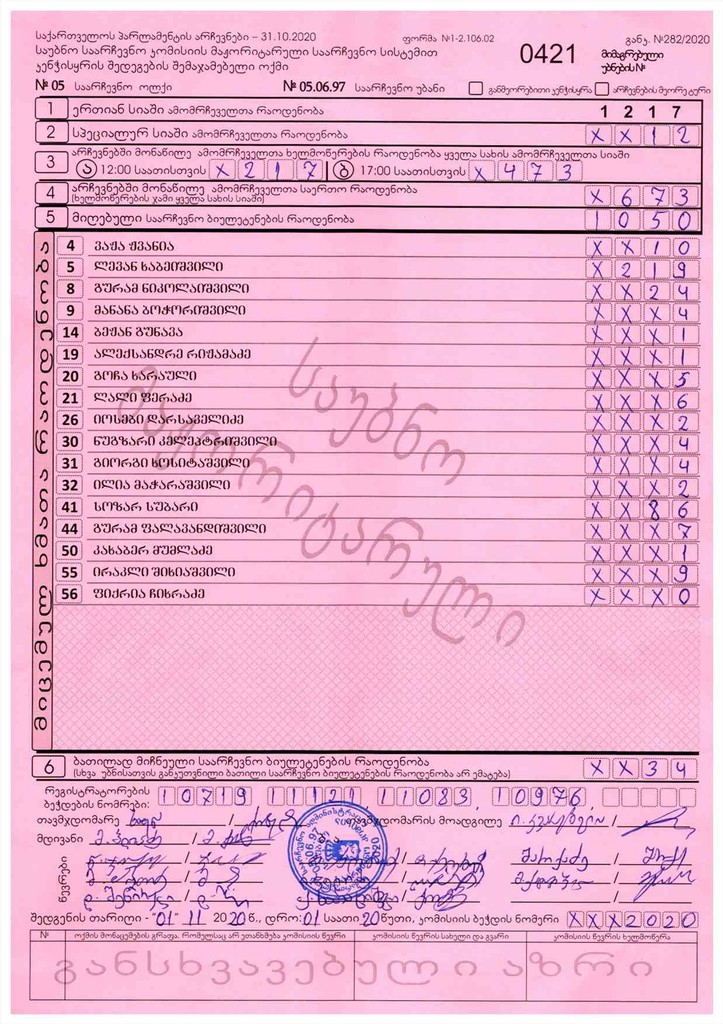 საქართველოს პარლამენტის არჩევნები – 31.10.2020 ფორმა №1-2.106.02 განკ. №282/2020
საუბნო საარჩევნო კომისიის მაჟორიტარული საარჩევნო სისტემით 0421 მიმაგრებული
კენჭისყრის შედეგების შემაჯამებელი ოქმი უბნების№
№ 05 საარჩევნო ოლქი № 05.06.97 საარჩევნო უბანი განმეორებითი კენჭისყრა არჩევნების მეორე ტური
1 ერთიან სიაში ამომრჩეველთა რაოდენობა 1 2 1 7
2 სპეციალურ სიაში ამომრჩეველთა რაოდენობა X X 1 2
3 არჩევნებში მონაწილე ამომრჩეველთა ხელმოწერების რაოდენობა ყველა სახის ამომრჩეველთა სიაში
ა 12:00 საათისთვის X 2 1 7 ბ 17:00 საათისთვის X 4 7 3
4 არჩევნებში მონაწილე ამომრჩეველთა საერთო რაოდენობა X 6 7 3
(ხელმოწერების ჯამი ყველა სახის სიაში)
5 მიღებული საარჩევნო ბიულეტენების რაოდენობა 1 0 5 0
მიცემულ ხმათა რაოდენობა
4 ვაჟა ჟვანია X X 1 0
5 ლევან ხაბეიშვილი X 2 1 9
8 გურამ ნიკოლაიშვილი X X 2 4
9 მანანა ბოჭორიშვილი X X X 4
14 ბეჟან გუნავა X X X 1
19 ალექსანდრე რიჟამაძე X X X 1
20 გოჩა ხარაული X X X 5
21 ლალი ფერაძე X X X 6
26 იოსები დარსაველიძე X X X 2
30 ნუგზარი კელეპტრიშვილი X X X 4
31 გიორგი ხოსიტაშვილი X X X 4
32 ილია მაჭარაშვილი X X X 2
41 სოზარ სუბარი X X 8 6
44 გურამ ფალავანდიშვილი X X X 7
50 კახაბერ მუმლაძე X X X 1
55 ირაკლი შიხიაშვილი X X X 9
56 ფიქრია ჩიხრაძე X X X 0
საუბნო
მაჟორიტარული
6 ბათილად მიჩნეული საარჩევნო ბიულეტენების რაოდენობა X X 3 4
(სხვა უბნისათვის განკუთვნილი ბათილი საარჩევნო ბიულეტენების რაოდენობა არ ემატება)
რეგისტრატორების
ბეჭდების ნომრები: 10719 11121 11083 10976
თავმჯდომარე / თავმჯდომარის მოადგილე /
მდივანი /
წევრები
შედგენის თარიღი - "01" 11 2020 წ., დრო: 01 საათი 20 წუთი, კომისიის ბეჭდის ნომერი X X X 2 0 2 0
№ ოქმის მონაცემების გრაფა, რომელსაც არ ეთანხმება კომისიის წევრი კომისიის წევრის სახელი და გვარი კომისიის წევრის ხელმოწერა
განსხვავებული აზრი